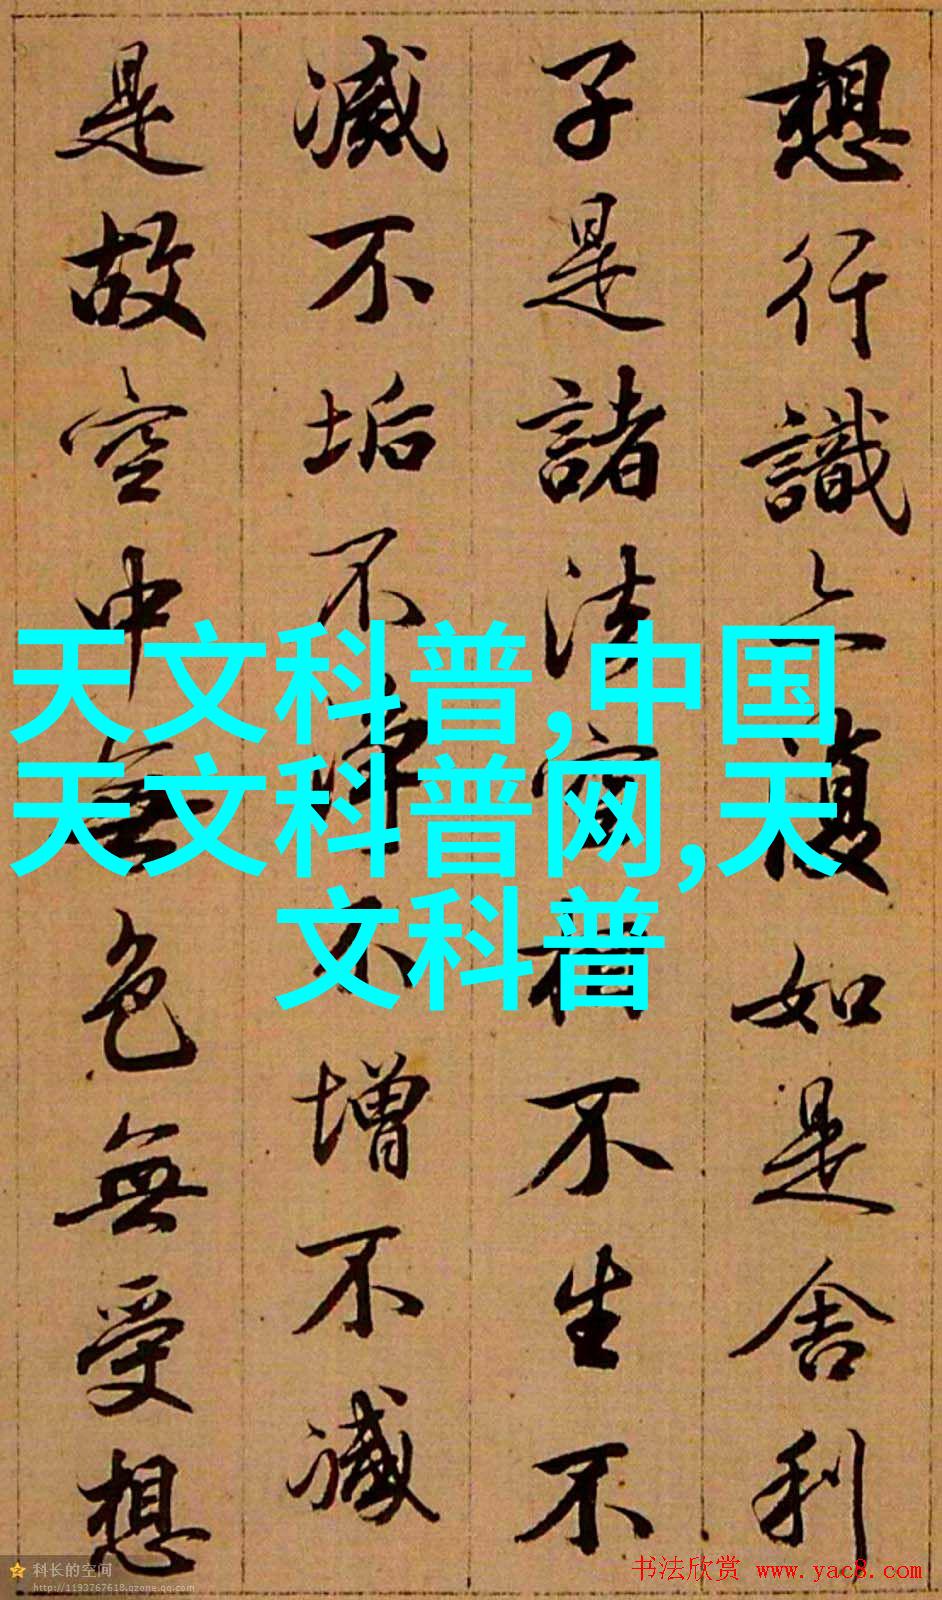 想行識亦復如是舍利
子是諸法空相不生不
滅不垢不淨不增不減
是故空中無色無受想
天文科普,中国
天文科普网,天
文科普
科长的空间
http://1193767618.qzone.qq.com
书法欣赏 www.yac8.com